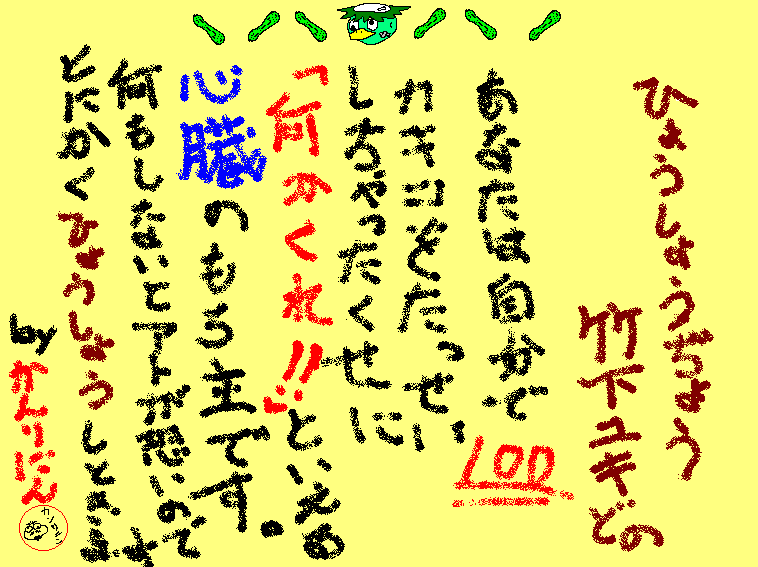 ひょうしょうぢょう
竹下ユキどの
あなたは自分で
LOD
カキコをたっせい
しちゃったくせに
「何かくれ!!」といえる
心臓のもち主です。
何もしないとアトが恐いので
とにかくひょうしょうしときます
by かんりにん